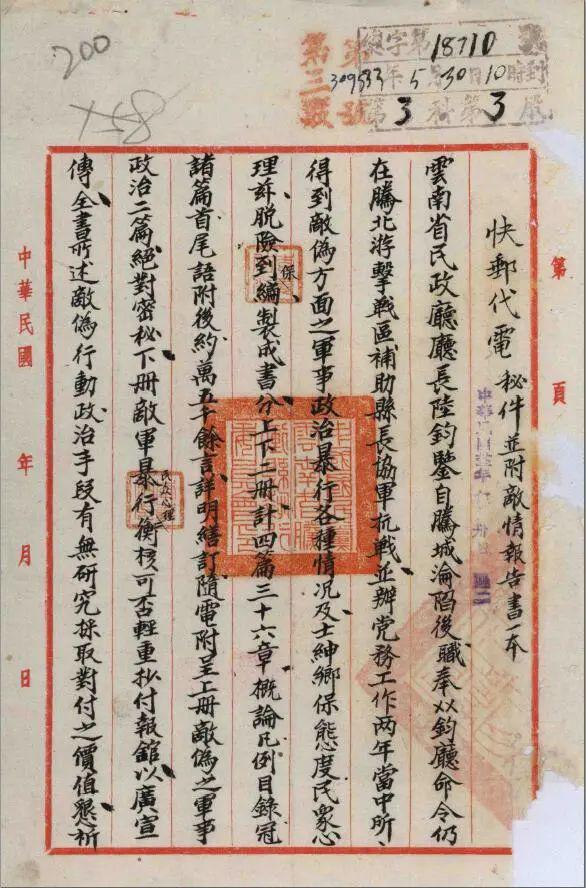 200
總字第18710號
33年5月30日10時到
第3科第3股
第 頁
快郵代電 秘件並附敵情報告書一本
雲南省民政廳廳長陸鈞鑒自騰城淪陷後職奉以鈞廳命令仍
在騰北游擊戰區補助縣長協軍抗戰並辦党務工作两年當中所、
得到敵偽方面之軍事政治暴行各種情况及士紳鄉保態度民衆心
理訴脫險到保編製成書分上下二册計四篇三十六章概論凡例目錄冠
諸篇首尾語附後約萬五千餘言詳明繕訂隨電附呈上册敵偽之軍事
政治二篇絕對密秘下册敵軍暴行衡核可否輕重抄付報館以廣宣
傳全書所述敵偽行動政治手段有無研究採取對付之價值懇祈
中華民國 年 月 日